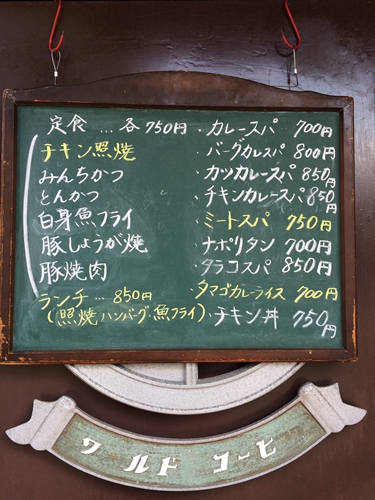 定食…各750円
チキン照焼
みんちかつ
とんかつ
白身魚フライ
豚しょうが焼
豚焼肉
ランチ…850円
(照焼ハンバーグ.魚フライ)
・カレースパ…700円
・バーグカレスパ 800円
・カツカレースパ 850円
・チキンカレースパ850円
・ミートスパ 750円
・ナポリタン 700円
・タラコスパ 850円
・タマゴカレーライス 700円
・チキン丼 750円
ワールド コーヒー